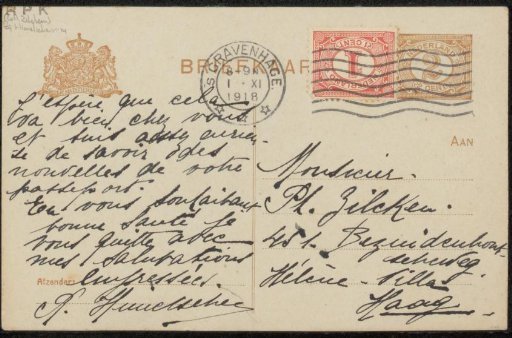 R P K
BRIEFKAAR
'S GRAVENHAGE
8-9
1 · XI
1918
1
CENT
NEDERLAND
J'espère que cela
va bien chez vous
et suis assez curieu-
se de savoir des
nouvelles de votre
passeport.
En vous souhaitant
bonne santé je
vous quitte avec
mes salutations
empressées.
Afzender:
AAN
Monsieur.
Ph. Zilcken.
Bezuidenhout-
scheweg.
Hélène-Villa
Haag.